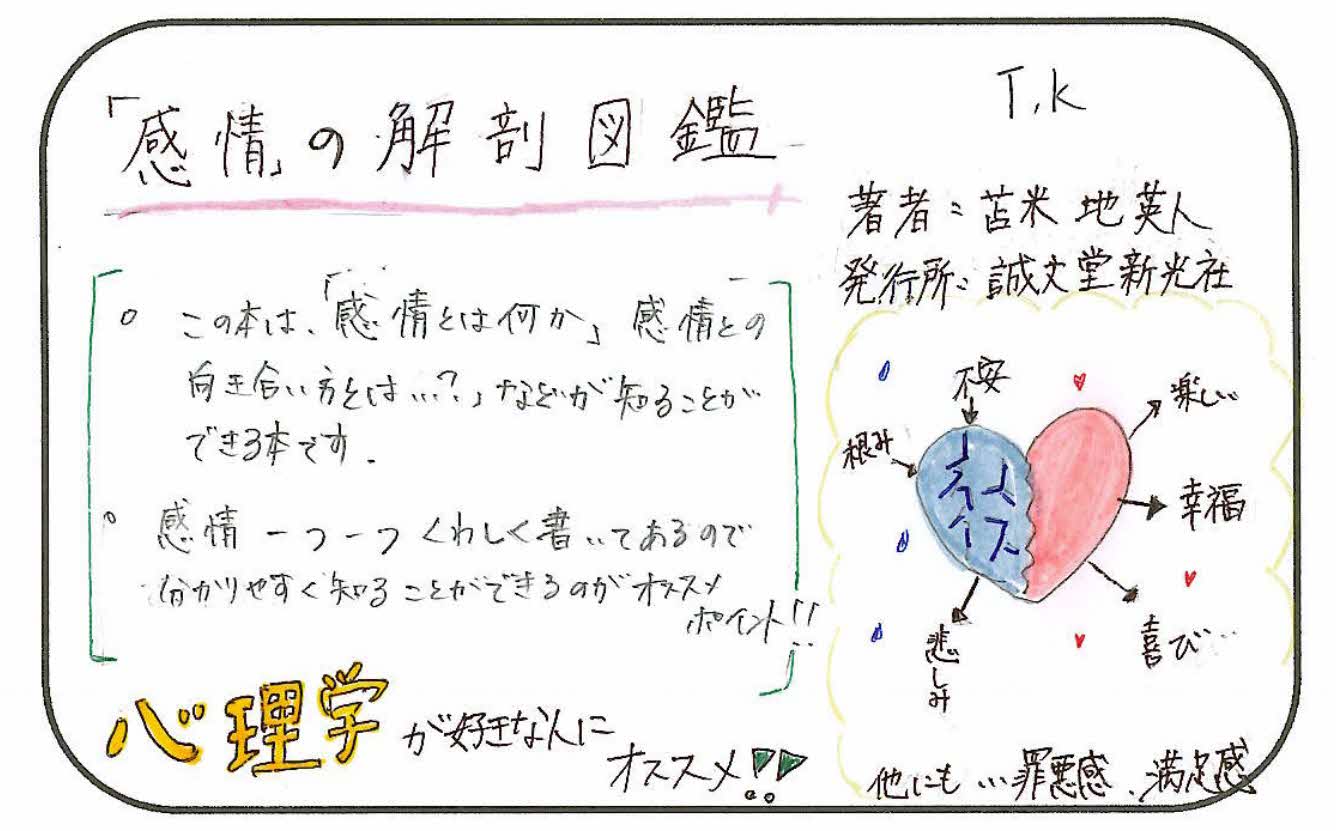 「感情」の解剖図鑑
T.K
著者:苫米地英人
発行所:誠文堂新光社
○ この本は、「感情とは何か」感情との
向き合い方とは…?」などが知ることが
できる本です.
○ 感情一つ一つくわしく書いてあるので
分かりやすく知ることができるのがオススメ
ポイント!!
心理学が好きな人に
オススメ!!
不安
根み
悲しみ
楽しい
幸福
喜び
他にも…罪悪感、満足感